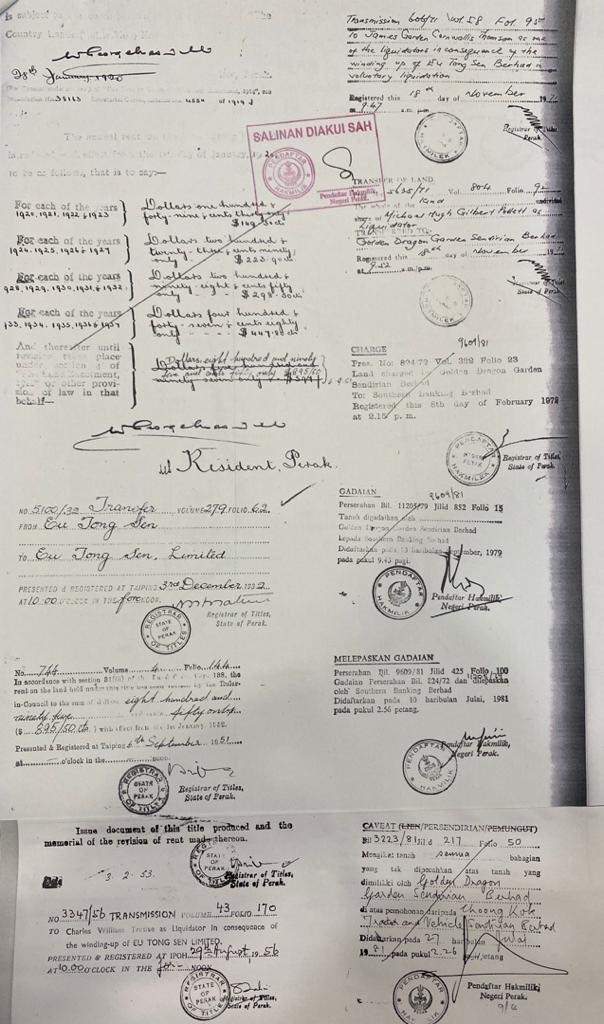 is subject
The
Country Land
W George Maxwell
28th January 1920
The annual rent on the
of January, 192
to be as follows, that is to say:—
For each of the years
1920, 1921, 1922 & 1923
Dollars one hundred &
forty-nine & cents thirty
only $149.30cts
For each of the years
1924, 1925, 1926 & 1927
Dollars two hundred &
twenty-three & cents ninety
only $223.90cts
For each of the years
1928, 1929, 1930, 1931 & 1932
Dollars two hundred &
ninety-eight & cents fifty
only $298.50cts
For each of the years
1933, 1934, 1935, 1936 & 1937
Dollars four hundred &
forty-seven & cents eighty
only $447.80cts
And thereafter until
revision takes place
under section 4 of
Enactment,
or other provi-
sion of law in that
behalf—
Dollars eight hundred and ninety
five and cents fifty only $895/50
W George Maxwell
Resident, Perak.
NO. 5100/32 Transfer VOLUME 279 FOLIO 62
FROM Eu Tong Sen
TO Eu Tong Sen, Limited
PRESENTED & REGISTERED AT TAIPING 3rd December 1932
AT 10.00 O'CLOCK IN THE forenoon.
Registrar of Titles,
State of Perak.
REGISTRAR OF TITLES
STATE OF PERAK
No. 744 Volume 4 Folio 144
In accordance with section
rent on the land held under this
in-Council to the sum of dollars eight hundred and
ninety five fifty only
($ 895/50 cts) with effect from the 1st January 1952.
Presented & Registered at Taiping 6th September 1951
at o'clock in the noon.
REGISTRAR OF TITLES
STATE OF PERAK
Registrar of Titles,
State of Perak.
Issue document of this title produced and the
memorial of the revision of rent made thereon.
3. 2. 53.
Registrar of Titles,
State of Perak.
NO 3347/56 TRANSMISSION VOLUME 43 FOLIO 170
TO Charles William as Liquidator in consequence of
the winding-up of EU TONG SEN LIMITED.
PRESENTED & REGISTERED AT IPOH 29th August, 1956
AT 10.00 O'CLOCK IN THE fore- NOON
REGISTRAR OF TITLES
STATE OF PERAK
Registrar of Titles,
State of Perak.
SALINAN DIAKUI SAH
PENDAFTAR HAKMILIK
Pendaftar Hakmilik,
Negeri Perak.
Transmission Vol 58 Fol. 95
to James Garden Cornwallis Thomson as one
of the liquidators in consequence of the
winding up of Eu Tong Sen Berhad in
voluntary liquidation
Registered this 18th day of November 1971
at 9.47 a.m.
Registrar of Titles
Perak.
TRANSFER OF LAND.
5635/71 Vol. 804 Folio 92
The whole of the land undivided
share of Michael Hugh Gilbert as
Liquidator
TRANSFERRED TO
Golden Dragon Garden Sendirian Berhad
Registered this 18th day of November
at 9.52 a.m./p.m.
State of Perak
CHARGE 9609/81
Pres. No: 824/72 Vol. 322 Folio 23
Land charged by Golden Dragon Garden
Sendirian Berhad
To: Southern Banking Berhad
Registered this 8th day of February 1972
at 2.15 p. m.
PENDAFTAR HAKMILIK
Registrar of Titles,
State of Perak.
GADAIAN 9609/81
Perserahan Bil. 11205/79 Jilid 852 Folio 15
Tanah digadaikan oleh
Golden Dragon Garden Sendirian Berhad
kepada Southern Banking Berhad
Didaftarkan pada 13 haribulan September, 1979
pada pukul 9.43 pagi.
PENDAFTAR HAKMILIK
Pendaftar Hakmilik
Negeri Perak.
MELEPASKAN GADAIAN
Perserahan Bil. 9609/81 Jilid 425 Folio 100
Gadaian Perserahan Bil. 824/72 dan dilepaskan
oleh Southern Banking Berhad
Didaftarkan pada 10 haribulan Julai, 1981
pada pukul 2.56 petang.
PENDAFTAR HAKMILIK
Pendaftar Hakmilik,
Negeri Perak.
CAVEAT (LIEN/PERSENDIRIAN/PEMUNGUT)
Bil 3223/81 Jilid 217 Folio 50
Mengikat tanah semua bahagian
yang tak dipecahkan atas tanah yang
dimiliki oleh Golden Dragon
Garden Sendirian Berhad
di atas pemohonan daripada Choong Kok
Tractor and Vehicle Sendirian Berhad
Didaftarkan pada 27 haribulan
Julai 1981 pada pukul 2.26 petang
PENDAFTAR HAKMILIK
Pendaftar Hakmilik,
Negeri Perak.